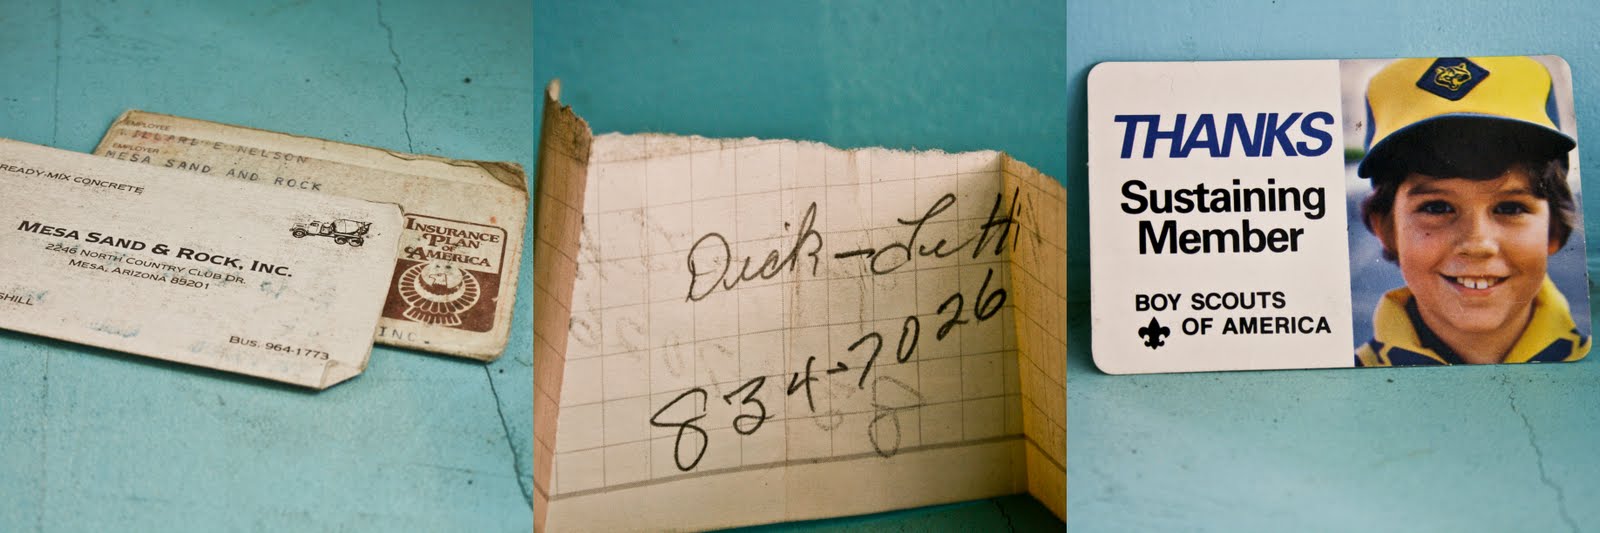 EMPLOYEE
WILLARD E NELSON
EMPLOYER
MESA SAND AND ROCK
INSURANCE
PLAN
OF
AMERICA
INC.
READY-MIX CONCRETE
MESA SAND & ROCK, INC.
2246 NORTH COUNTRY CLUB DR.
MESA, ARIZONA 85201
BUS. 964-1773
Dick - 
834-7026
THANKS
Sustaining
Member
BOY SCOUTS
OF AMERICA